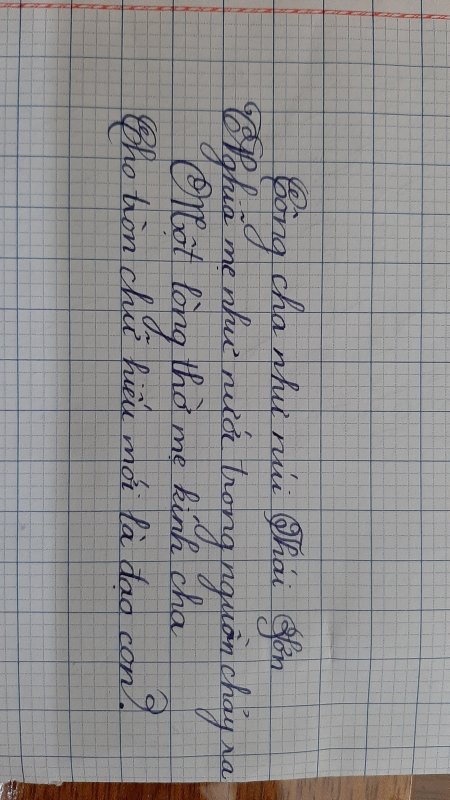 Công cha như núi Thái Sơn
Nghĩa mẹ như nước trong nguồn chảy ra
Một lòng thờ mẹ kính cha
Cho tròn chữ hiếu mới là đạo con.